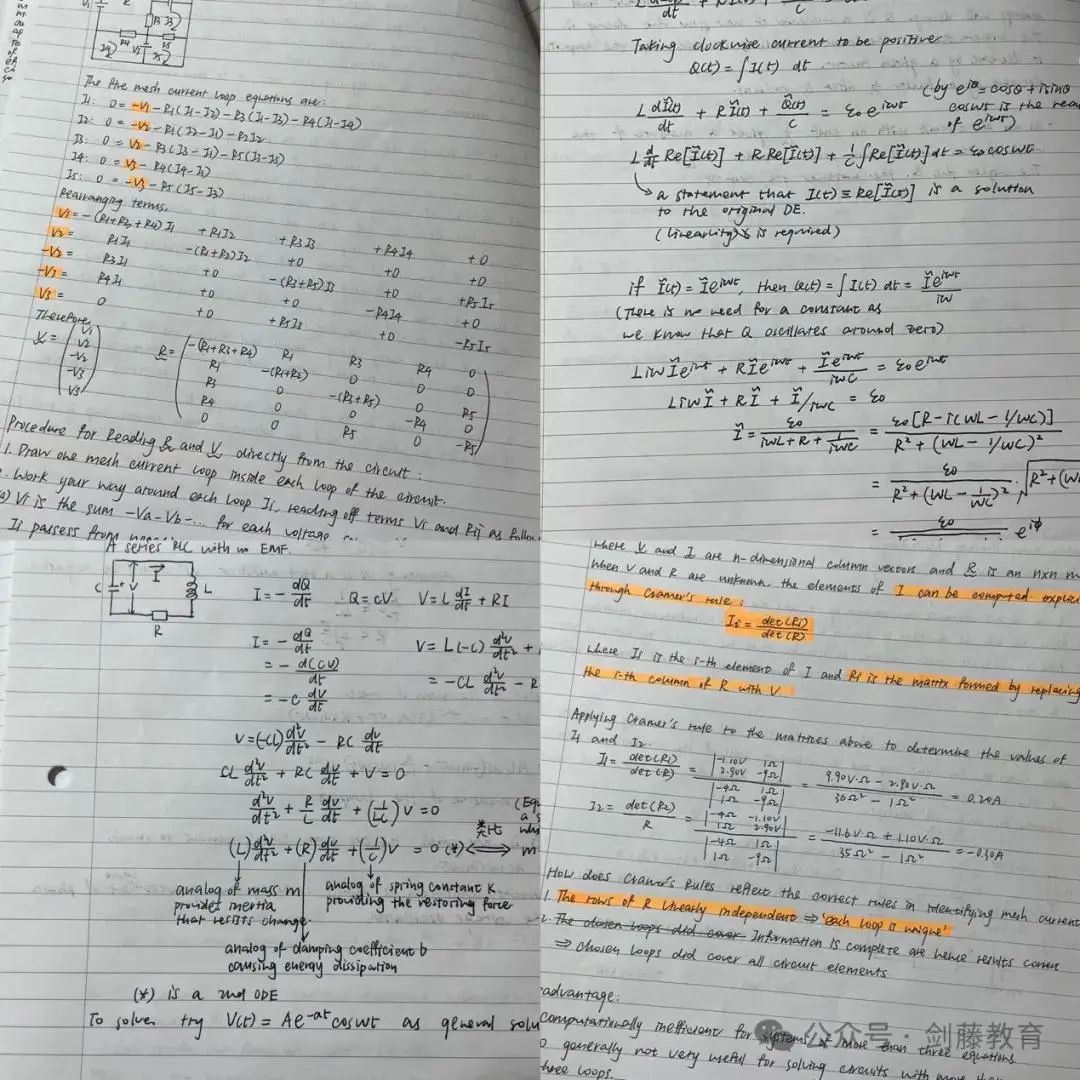 V1
R3
I3
R4
I4
V3
R5
I5
The five mesh current loop equations are:
I1: 0 = -V1 - R1(I1-I2) - R3(I1-I3) - R4(I1-I4)
I2: 0 = -V2 - R1(I2-I1) - R2I2
I3: 0 = V2 - R3(I3-I1) - R5(I3-I5)
I4: 0 = V3 - R4(I4-I1)
I5: 0 = -V3 - R5(I5-I3)
Rearranging terms,
V1 = -(R1+R3+R4)I1 +R1I2 +R3I3 +R4I4 +0
V2 = R1I1 -(R1+R2)I2 +0 +0 +0
-V2 = R3I1 +0 -(R3+R5)I3 +0 +R5I5
-V3 = R4I1 +0 +0 -R4I4 +0
V3 = 0 +0 +R5I3 +0 -R5I5
Therefore,
V = (V1 V2 -V2 -V3 V3)
R =
-(R1+R3+R4) R1 R3 R4 0
R1 -(R1+R2) 0 0 0
R3 0 -(R3+R5) 0 R5
R4 0 0 -R4 0
0 0 R5 0 -R5
Procedure for Reading R and V directly from the circuit:
1. Draw one mesh current loop inside each loop of the circuit.
. Work your way around each loop Ii, reading off terms Vi and Rij as follow
a) Vi is the sum -Va-Vb-... for each voltage
Ii passes from
Taking clockwise current to be positive
Q(t) = ∫I(t) dt
(by e^iθ = cosθ + isinθ
L dĨ(t)/dt + RĨ(t) + Q̃(t)/C = ε0e^iωt
coswt is the rea
of e^iωt)
L d/dt Re[Ĩ(t)] + R Re[Ĩ(t)] + 1/C ∫Re[Ĩ(t)]dt = ε0 coswt
a statement that I(t) ≡ Re[Ĩ(t)] is a solution
to the original DE.
(linearlity is required)
if Ĩ(t) = Ĩe^iωt, then Q(t) = ∫I(t) dt = Ĩe^iωt/iω
(There is no need for a constant as
we know that Q oscillates around zero)
LiωĨe^iωt + RĨe^iωt + Ĩe^iωt/iωC = ε0e^iωt
LiωĨ + RĨ + Ĩ/iωC = ε0
Ĩ = ε0/(iωL + R + 1/iωC) = ε0[R-i(ωL - 1/ωC)]/(R² + (ωL - 1/ωC)²)
= ε0/(R² + (ωL - 1/ωC)²) · √R²+(ω
= ε0 e^iϕ
A series RLC with no EMF.
C
V
I
L
R
I = -dQ/dt Q = CV V = L dI/dt + RI
I = -dQ/dt V = L(-C) d²V/dt² +
= -d(CV)/dt = -CL d²V/dt² - R
= -C dV/dt
V = (-CL) d²V/dt² - RC dV/dt
CL d²V/dt² + RC dV/dt + V = 0
d²V/dt² + R/L dV/dt + (1/LC)V = 0
(Equ
a s
(L) d²V/dt² + (R) dV/dt + (1/C)V = 0 (*) 类比 ⟺ m
analog of mass m
provides inertia
that resists change.
analog of spring constant K
providing the restoring force
analog of damping coefficient b
causing energy dissipation
(*) is a 2nd ODE
To solve, try V(t) = Ae^-at coswt as general solu
where V and I are n-dimensional column vectors and R is an nxn m
When V and R are unknown, the elements of I can be computed explic
through Cramer's rule:
Ii = det(Ri)/det(R)
where Ii is the i-th element of I and Ri is the matrix formed by replacing
the i-th column of R with V
Applying Cramer's rule to the matrices above to determine the values of
I1 and I2.
I1 = det(R1)/det(R) = |-1.10V 1Ω 2.90V -9Ω| / |-4Ω 1Ω 1Ω -9Ω| = (9.90V·Ω - 2.90V·Ω)/(36Ω² - 1Ω²) = 0.20A
I2 = det(R2)/R = |-4Ω -1.10V 1Ω 2.90V| / |-4Ω 1Ω 1Ω -9Ω| = (-11.6V·Ω + 1.10V·Ω)/(35Ω² - 1Ω²) = -0.30A
How does Cramer's Rules reflect the correct rules in identifying mesh current
1. The rows of R linearly independent ⇒ 'each loop is unique'
2. The chosen loops did cover Information is complete are hence results correc
⇒ chosen loops did cover all circuit elements
advantage:
Computationally inefficient for systems of more than three equations
generally not very useful for solving circuits with more than
three loops.
公众号 · 剑藤教育